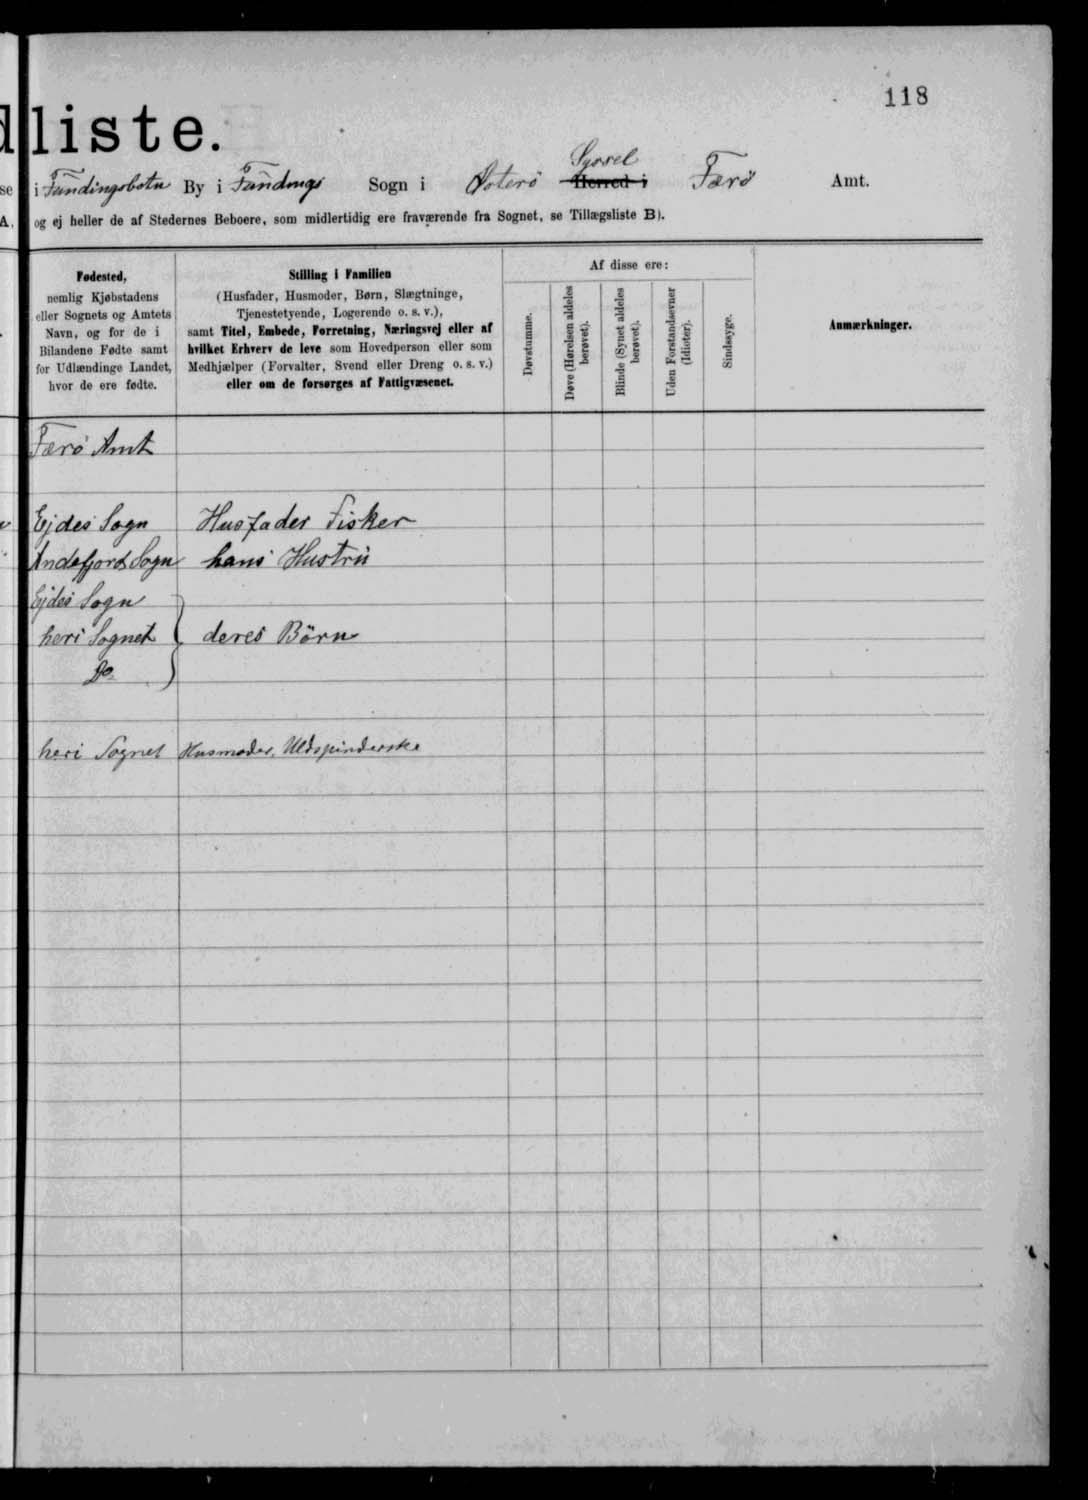 118
dliste.
se i Fundingsbotn By i Fundings Sogn i Østerø Syssel Herred i Færø Amt.
A, og ej heller de af Stedernes Beboere, som midlertidig ere fraværende fra Sognet, se Tillægsliste B).
Fødested,
nemlig Kjøbstadens
eller Sognets og Amtets
Navn, og for de i
Bilandene Fødte samt
for Udlændinge Landet,
hvor de ere fødte.
Stilling i Familien
(Husfader, Husmoder, Børn, Slægtninge,
Tjenestetyende, Logerende o. s. v.),
samt Titel, Embede, Forretning, Næringsvej eller af
hvilket Erhverv de leve som Hovedperson eller som
Medhjælper (Forvalter, Svend eller Dreng o. s. v.)
eller om de forsørges af Fattigvæsenet.
Af disse ere:
Døvstumme.
Døve (Hørelsen aldeles
berøvet).
Blinde (Synet aldeles
berøvet).
Uden Forstandsevner
(Idioter).
Sindssyge.
Anmærkninger.
Færø Amt
Ejdes Sogn Husfader Fisker
Andefjords Sogn hans Hustru
Ejdes Sogn
heri Sognet deres Børn
Do
heri Sognet Husmoder, Uldspinderske